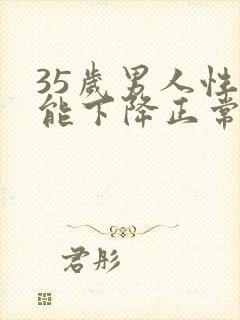 35歲男人性
能下降正常
君彤